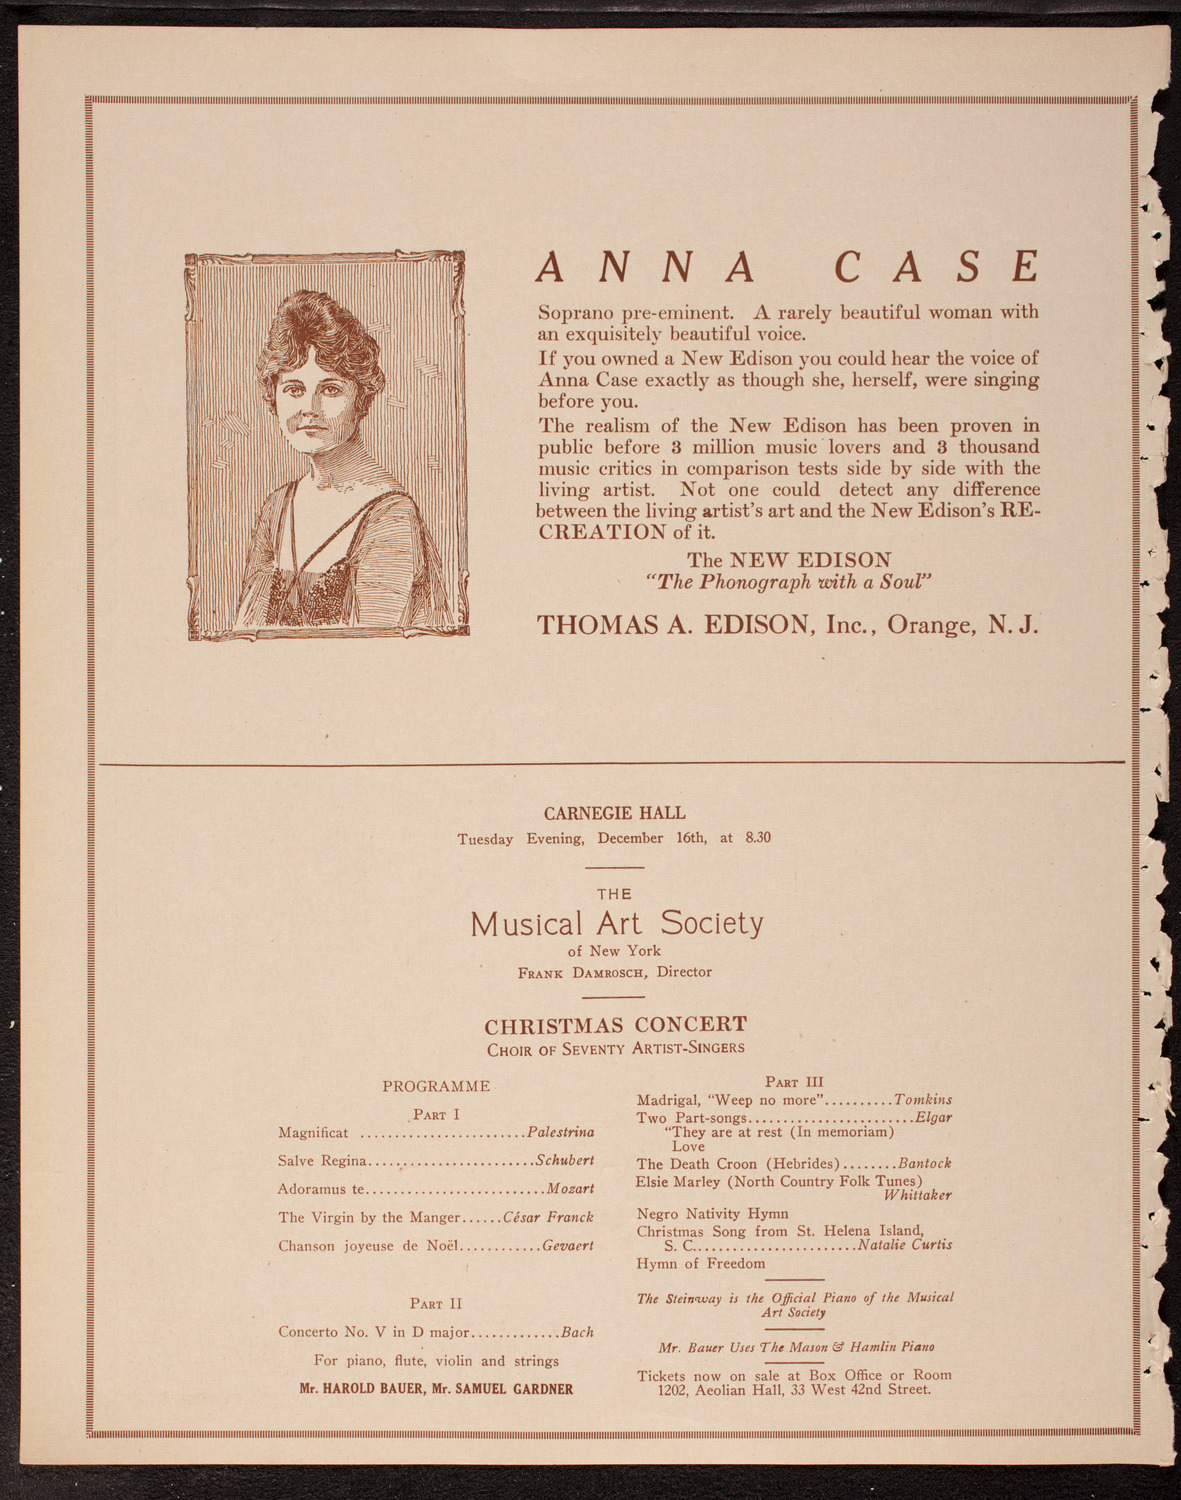 ANNA CASE
Soprano pre-eminent. A rarely beautiful woman with
an exquisitely beautiful voice.
If you owned a New Edison you could hear the voice of
Anna Case exactly as though she, herself, were singing
before you.
The realism of the New Edison has been proven in
public before 3 million music lovers and 3 thousand
music critics in comparison tests side by side with the
living artist. Not one could detect any difference
between the living artist's art and the New Edison's RE-
CREATION of it.
The NEW EDISON
"The Phonograph with a Soul"
THOMAS A. EDISON, Inc., Orange, N. J.
CARNEGIE HALL
Tuesday Evening, December 16th, at 8.30
THE
Musical Art Society
of New York
FRANK DAMROSCH, Director
CHRISTMAS CONCERT
CHOIR OF SEVENTY ARTIST-SINGERS
PROGRAMME
PART I
Magnificat ........................Palestrina
Salve Regina........................Schubert
Adoramus te..........................Mozart
The Virgin by the Manger......César Franck
Chanson joyeuse de Noël............Gevaert
PART II
Concerto No. V in D major.............Bach
For piano, flute, violin and strings
Mr. HAROLD BAUER, Mr. SAMUEL GARDNER
PART III
Madrigal, "Weep no more"..........Tomkins
Two Part-songs........................Elgar
"They are at rest (In memoriam)
Love
The Death Croon (Hebrides)........Bantock
Elsie Marley (North Country Folk Tunes)
Whittaker
Negro Nativity Hymn
Christmas Song from St. Helena Island,
S. C........................Natalie Curtis
Hymn of Freedom
The Steinway is the Official Piano of the Musical
Art Society
Mr. Bauer Uses The Mason & Hamlin Piano
Tickets now on sale at Box Office or Room
1202, Aeolian Hall, 33 West 42nd Street.